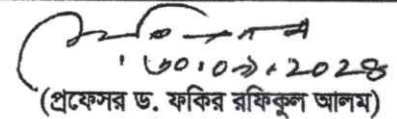 ৩০.০৯.২০২৪
(প্রফেসর ড. ফকির রফিকুল আলম)